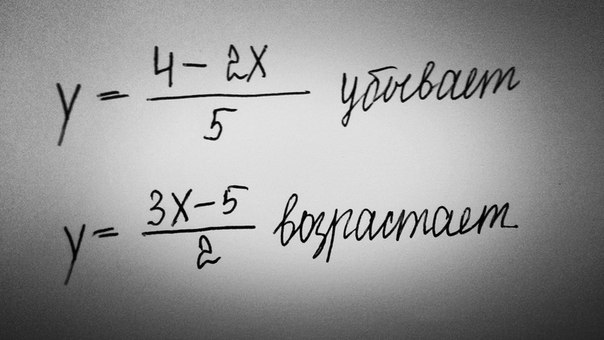 y = (4 - 2x)/5 убывает
y = (3x - 5)/2 возрастает